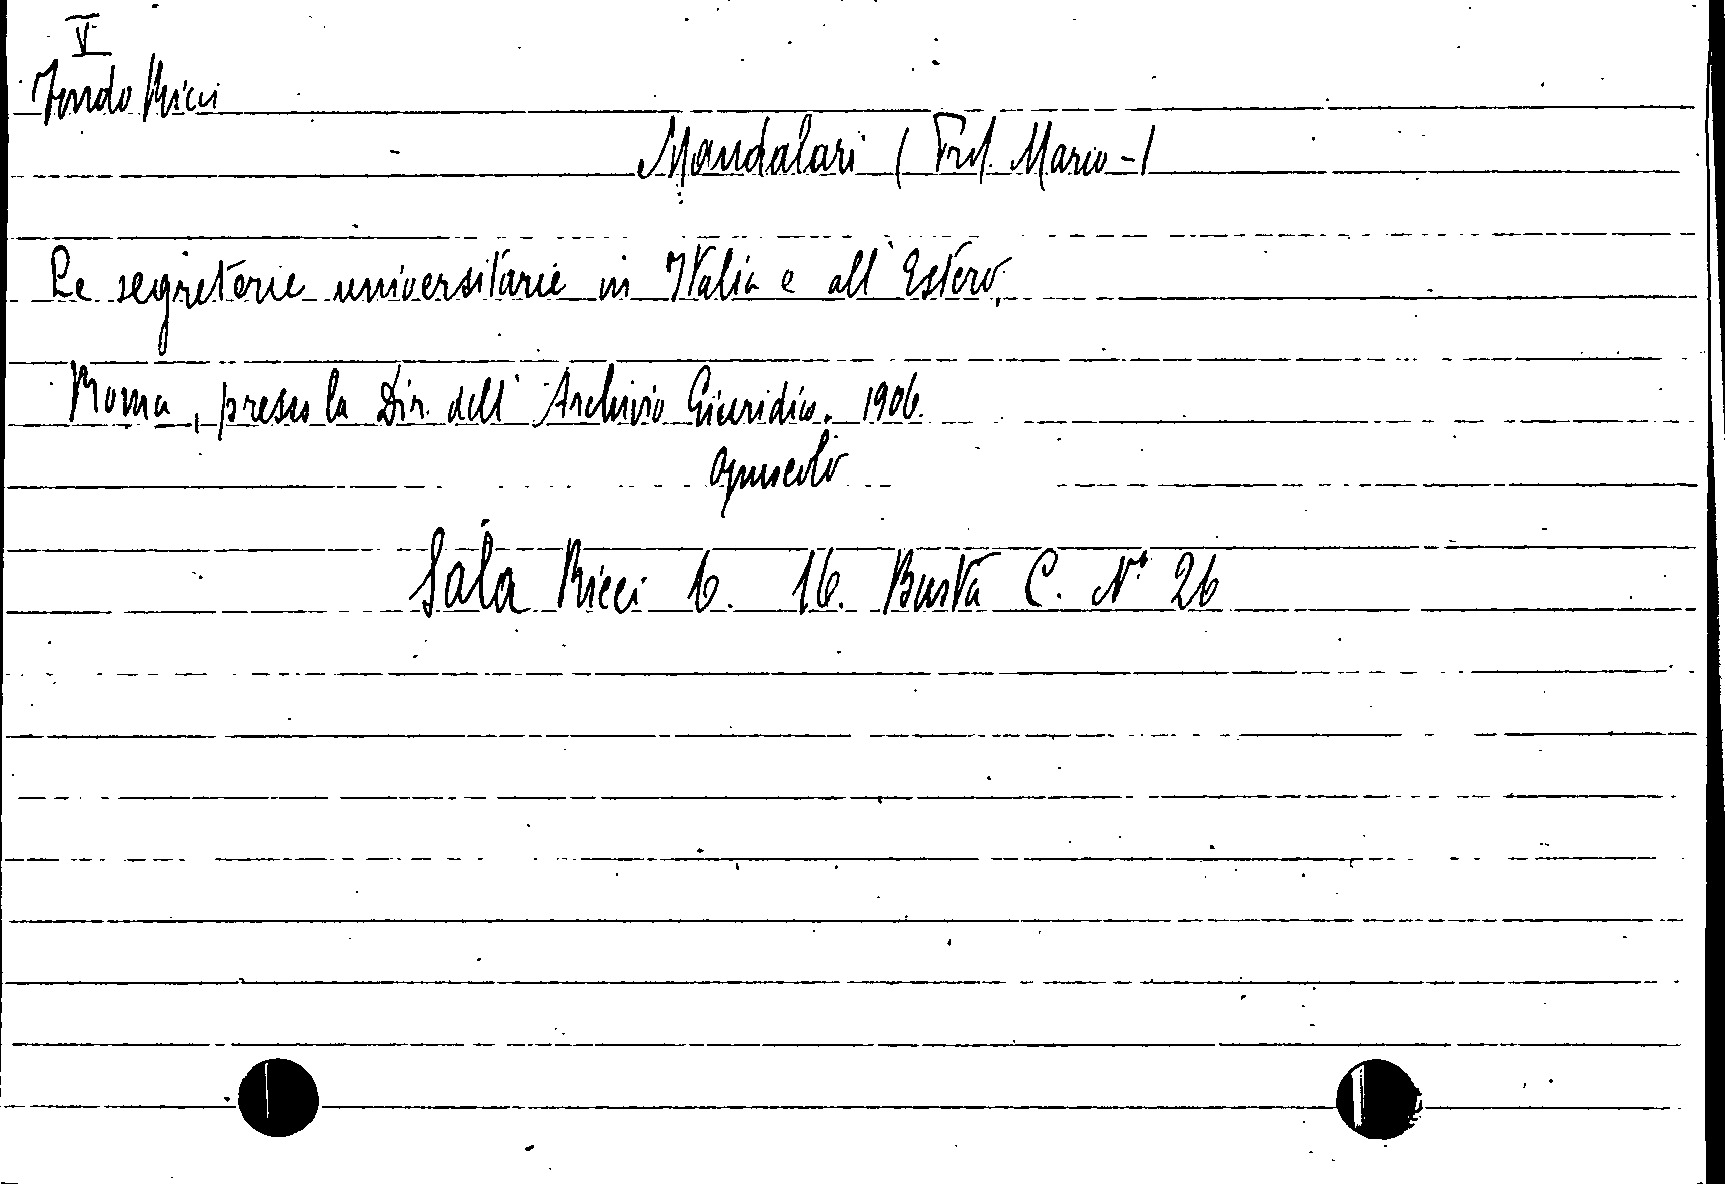 V
Fondo Ricci
Mandalari (Prof. Mario -)
Le segreterie universitarie in Italia e all'Estero.
Roma, presso la Dir. dell'Archivio Giuridico. 1906.
opuscolo
Sala Ricci 6. 16. Busta C. N° 26